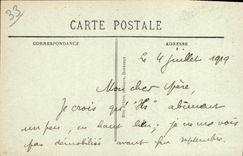 33
CARTE POSTALE
CORRESPONDANCE
ADRESSE
Le 4 Juillet 1919
Mon cher Père,
Je crois qu' "Ils" abîment
un peu, en haut lieu; je ne me vois
pas démobilisé avant fin septembre.